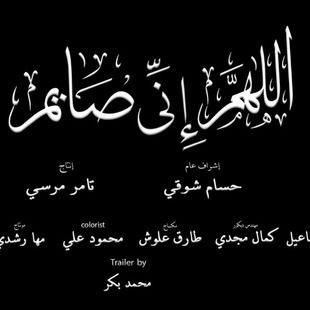 اللهم إنّي صايم
إشراف عام إنتاج
حسام شوقي تامر مرسي
مهندس ديكور مكساج colorist مونتاج
اعيل كمال مجدي طارق علوش محمود علي مها رشدي
Trailer by
محمد بكر